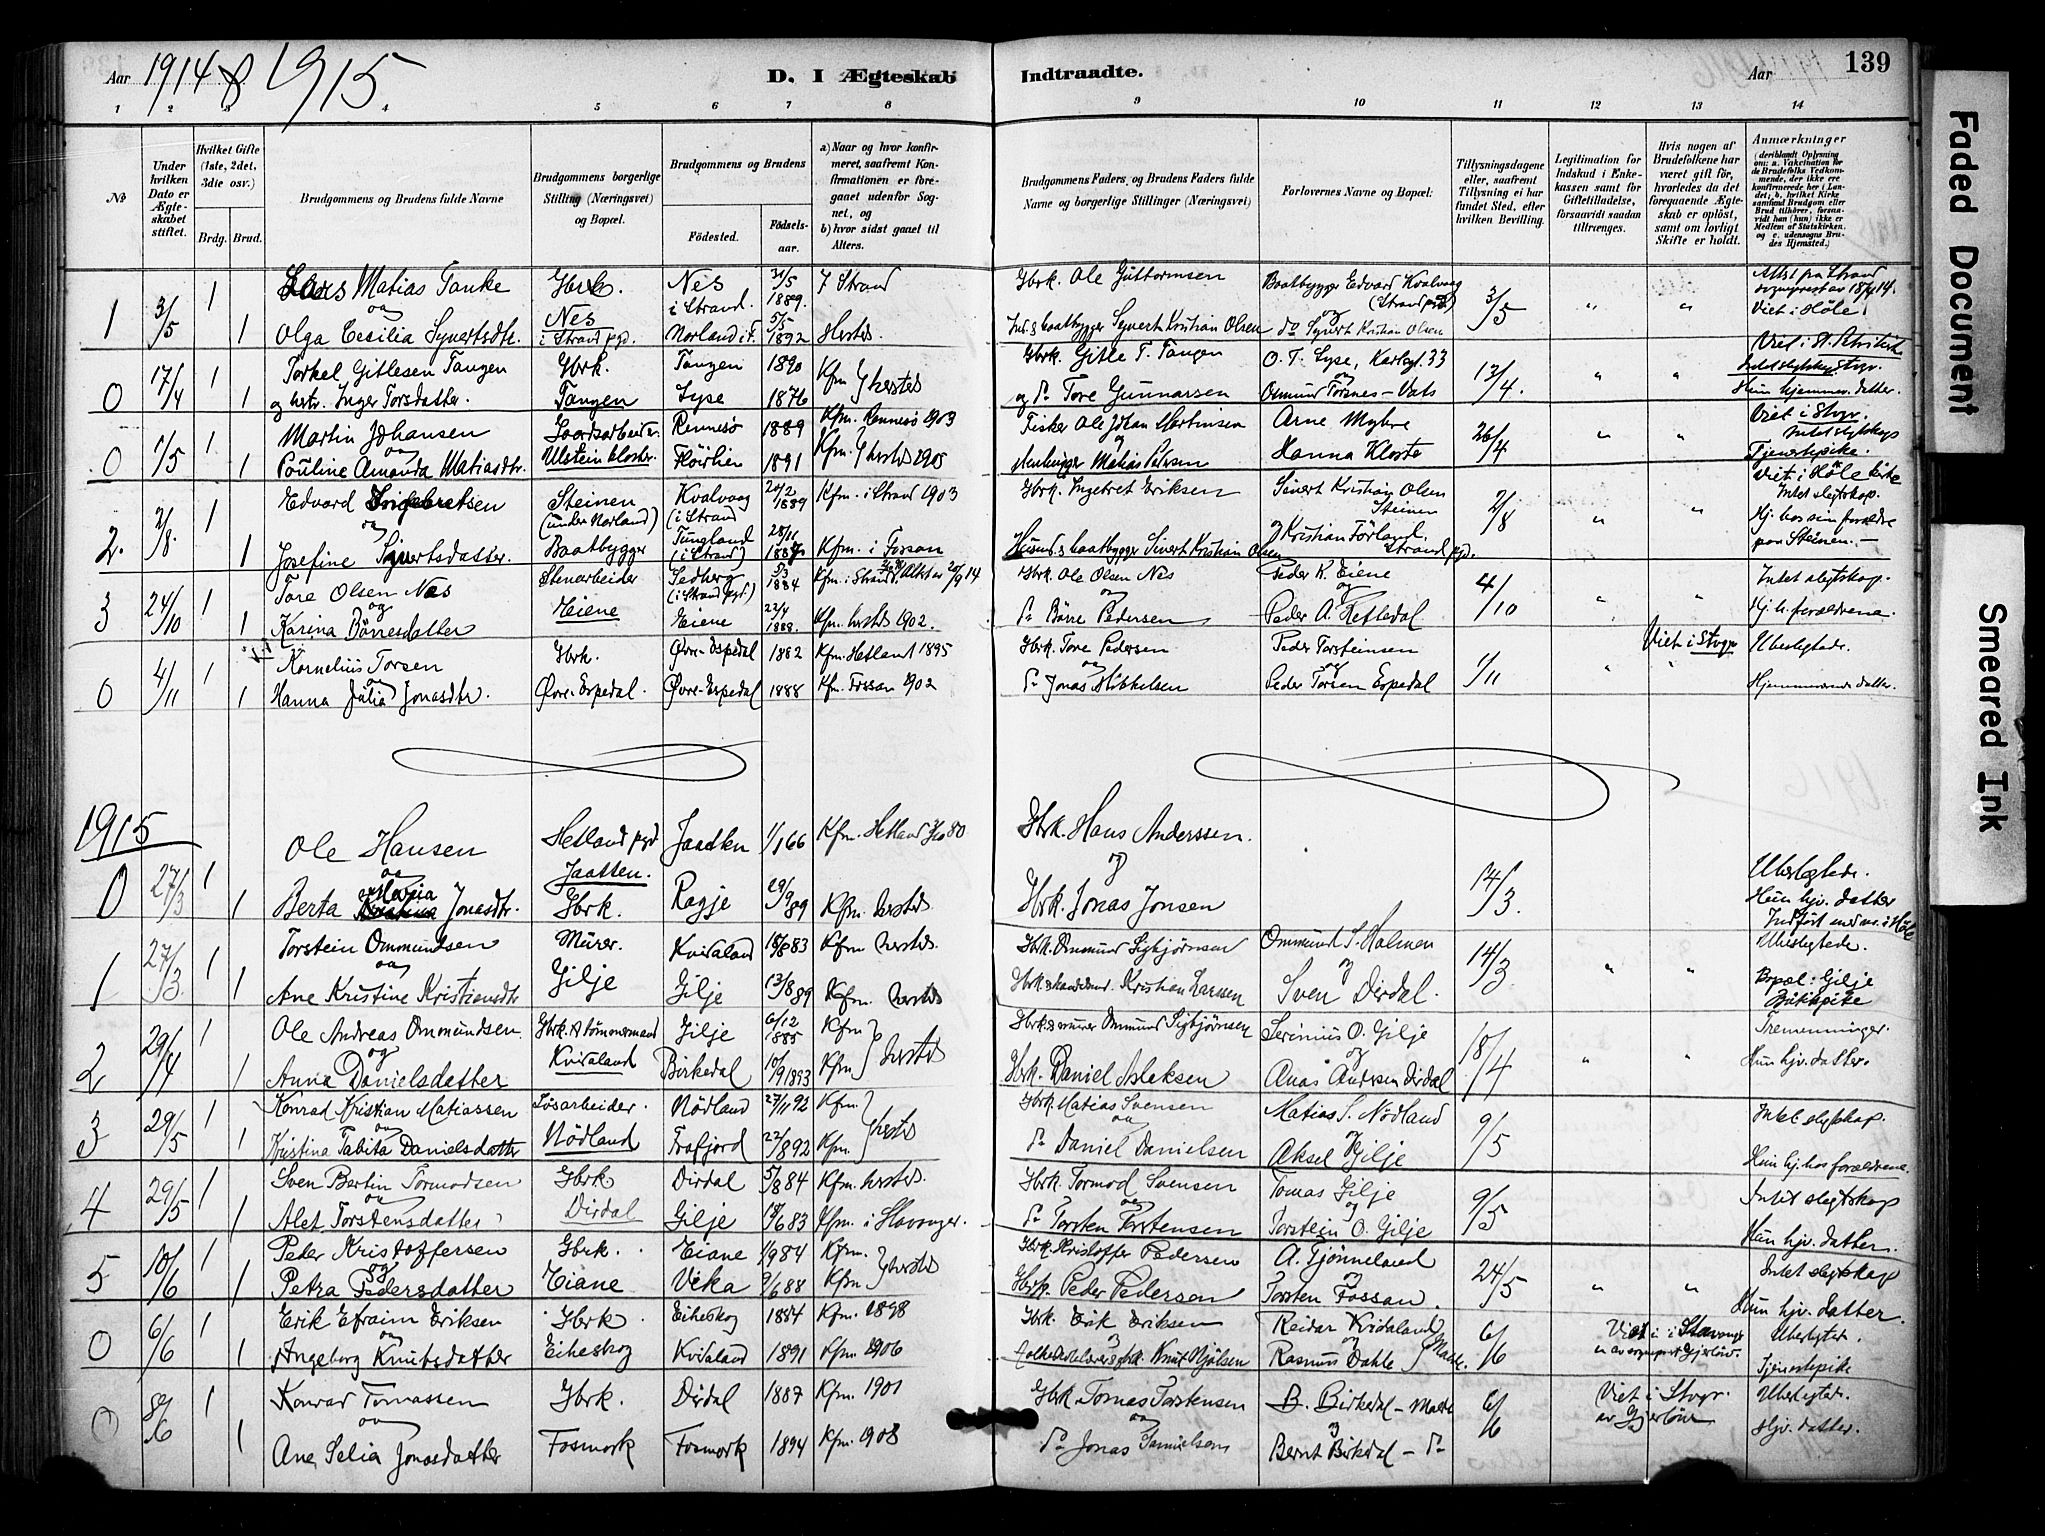 Aar 1914 & 1915.
D. I Ægteskab Indtraadte.
Aar
139
1 2 3 4 5 6 7 8 9 10 11 12 13 14
№
Under hvilken Dato er Ægteskabet stiftet.
Hvilket Gifte (1ste, 2det, 3die osv.)
Brdg. Brud.
Brudgommens og Brudens fulde Navne
Brudgommens borgerlige Stilling (Næringsvei) og Bopæl.
Brudgommens og Brudens
Fødested.
Fødselsaar.
a) Naar og hvor konfirmeret, saafremt Konfirmationen er foregaaet udenfor Sognet, og
b) hvor sidst gaaet til Alters.
Brudgommens Faders og Brudens Faders fulde Navne og borgerlige Stillinger (Næringsvei)
Forlovernes Navne og Bopæl:
Tillysningsdagene eller, saafremt Tillysning ei har fundet Sted, efter hvilken Bevilling.
Legitimation for Indskud i Enkekassen samt for Giftetilladelse, forsaavidt saadan tiltrænges.
Hvis nogen af Brudefolkene har været gift før, hvorledes da det foregaaende Ægteskab er opløst, samt om lovligt Skifte er holdt.
Anmærkninger
(deriblandt Oplysning om: a. Vakcination for de Brudefolks Vedkommende, der ikke ere konfirmerede her i Landet; b. hvilket Kirkesamfund Brudgom eller Brud tilhører, forsaavidt han (hun) ikke er Medlem af Statskirken, og c. udensogns Brudes Hjemsted.)
1 3/5 1 Lars Matias Tanke Gbrk. Nes i Strand. 31/5 1889. 7 Strand Gbrk. Ole Guttormsen Baatbygger Edvard Kvalvaag (Strand pgd) 3/5 " " Attest fra Strand sogneprest av 18/4 14.
og
1 Olga Cecilia Syvertsdtr. Nes i Strand pgd. Norland i F. 5/5 1892 Herstds. Ind. & baatbygger Syvert Kristian Olsen og do Syvert Kristian Olsen Viet i Höle.
0 17/4 1 Torkel Gitlesen Tangen Gbrk. Tangen 1890 Kfm herstds Gbrk. Gitle T. Tangen O. T. Lyse, Karlsgt. 33 13/4. " "
1 og hstr. Inger Torsdatter. Tangen Lyse 1876 og do Tore Gunnarsen og Osmund Torsnes - Vats Hun hjemmev. datter.
0 1/5 1 Martin Johansen Rennesö 1889 Kfm. Rennesö 1903 Fisker Ole Johan Martinsen Arne Myhre 26/4 " " Viet i Stvgr.
og
1 Pouline Amanda Matiasdtr. Ulstein kloster. Flöirlien 1891 Kfm. herstds 1905 og Matias Pedersen Hanna Kloste Intet slegtskap Tjenestepike.
2. 2/8. 1 Edvard Ingebretsen Steinen (under Norland) Kvalvaag (i Strand) 20/2 1889 Kfm. i Strand 1903 Gbrk. Ingebret Eriksen Sivert Kristian Olsen Steinen 2/8 " " Viet i Höle kirke Intet slegtskap.
og
1 Josefine Sivertsdatter. Baatbygger Tungland (i Strand) 28/11 1887 Kfm. i Fossan Husmd. & baatbygger Sivert Kristian Olsen og Kristian Förland. Strand pgd. Hj. hos sine foreldre paa Steinen. -
3 24/10 1 Tore Olsen Nes Stenarbeider Sedberg (i Strand pgd.) 5/3 1884 Kfm. i Strand, Attest av 20/9 14 Gbrk. Ole Olsen Nes Peder K. Eiene 4/10 " " Intet slegtskap.
og
1 Karina Börresdatter Eiene Eiene 22/4 1888. Kfm. herstds 1902. do Börre Pedersen og Peder A. Refledal Hj. h. foreldrene.
0 4/11 1 Kornelius Torsen Gbrk. Øvre-Espedal 1882 Kfm. Hetland 1895 Gbrk. Tore Pedersen Peder Torsteinsen 1/11 " Viet i Stvgr Ubeslegtede.
og
1 Hanna Julia Jonasdtr. Øvre-Espedal. Øvre-Espedal 1888 Kfm. Fossan 1902 do Jonas Mikkelsen og Peder Torsen Espedal Hjemmeværende datter.
1915
0 27/3 1 Ole Hansen Hetland pgd Jaatten. Jaatten 1/1 66 Kfm. Hetland 80 Gbrk. Hans Anderssen. 14/3. Ubeslegtede.
og
1 Berta Maria Jonasdtr. Gbrk. Ragje 29/9 89 Kfm. herstds. og Gbrk. Jonas Jonsen Hun hjv. datter
1 27/3 1 Torstein Ommundsen Murer. Kvidaland 18/8 83 Kfm herstds. Gbrk. Ommund Sigbjörnsen Ommund S. Holmen 14/3 " " Ubeslegtede.
og
1 Ane Kristine Kristiansdtr Gilje Gilje 13/8 89 Kfm. herstds Kristian Larssen og Sven Dirdal. Bopæl: Gilje
2 29/4 1 Ole Andreas Ommundsen Gbrk. & tömmermand Gilje 6/12 1885 Kfm herstds Gbrk. & murer Ommund Sigbjörnsen Serinius O. Gilje 18/4 " " Tremenninger.
og
1 Anna Danielsdatter Kvidaland Birkedal 10/9 1893 Kfm Gbrk. Daniel Aslaksen og Anas Andersen Dirdal Hun hjv. datter.
3 29/5 1 Konrad Kristian Matiassen Lösarbeider. Nödland 27/11 92 Kfm herstds Gbrk. Matias Svensen Matias S. Nödland 9/5 Intet slegtskap.
og
1 Kristina Tabita Danielsdatter Nödland Frafjord 22/8 92 Kfm. do Daniel Danielsen og Aksel Gilje Hun hj. hos foreldrene.
4 29/5 1 Sven Bertin Tormodsen Gbrk Dirdal 5/8 84 Kfm. herstds. Gbrk. Tormod Svensen Tomas Gilje 9/5 Intet slegtskap
og
1 Alet Torstensdatter Dirdal Gilje 18/6 83 Kfm. i Stavanger. do Torsten Torstensen og Torstein O. Gilje Hun hjv. datter.
5 10/6 1 Peder Kristoffersen Gbrk. Eiane 1/9 84 Kfm. herstds Gbrk. Kristoffer Pedersen A. Tjönneland 24/5 " " Intet slegtskap
og
1 Petra Pedersdatter Eiane Vika 9/6 88 Kfm. Gbrk. Peder Pedersen og Torsten Fossan. Hun hjv. datter.
0 6/6 1 Erik Efraim Eriksen Gbrk. Eikeskog 1884 Kfm. 1898 Gbrk. Erik Eriksen Reidar Kvidaland 6/6 Viet i Stavanger Ubeslegtede.
og
1 Ingeborg Knutsdatter Eikeskog Kvidaland 1891 Kfm. 1906 Knut Njölsen og Rasmus Dahle av sogneprest Gjerlöv. Tjenestepike
0 6/6 1 Konrad Tomassen Gbrk. Dirdal 1887 Kfm. 1901 Gbrk. Tomas Torstensen B. Birkedal - Madla 6/6 Viet i Stvgr. Ubeslegtede.
og
1 Ane Selia Jonasdatter Fosmork Fosmork 1894 Kfm. 1908 do Jonas Samuelsen og Bernt Birkedal - do av Gjerlöw Hjv. datter.
Faded Document
Smeared Ink